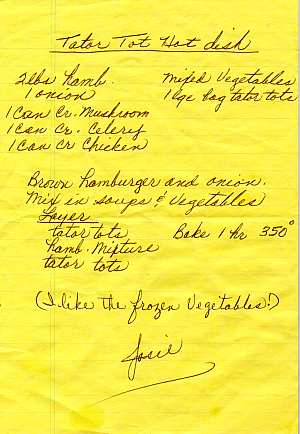 Tator Tot Hot dish
2lbs hamb. Mixed Vegetables
1 onion 1 lge bag tator tots
1 Can Cr. Mushroom
1 Can Cr. Celery
1 Can Cr Chicken
Brown hamburger and onion.
Mix in soups & Vegetables
Layer
tator tots Bake 1 hr 350°
hamb. Mixture
tator tots
(I like the frozen Vegetables!)
Josie